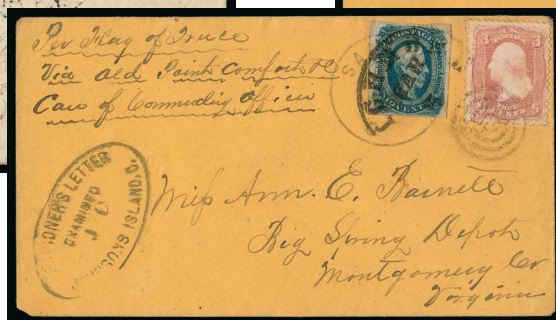 Per Flag of Truce
Via Old Point Comfort
Care of Commnding Officer
POSTAGE
3
3
CENTS
SA
PRISONER'S LETTER
EXAMINED
J C
JOHNSONS ISLAND, O.
Miss Ann. E. Barnett
Big Spring Depot
Montgomery Co
Virginia